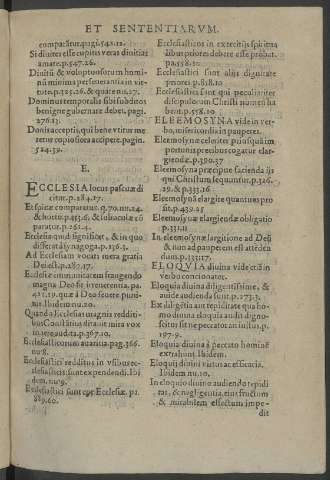 ET SENTENTIARVM.
comparãtur. pagi. 542. 12.
Si diuites esse cupitis veras diuitias
amate. p. 547. 26.
Diuitũ & voluptuosorum homi-
nũ minima perseuerantia in vir-
tute. p. 325. 26. & quare nu. 27.
Dominus temporalis sibi subdi-os
benigne gubernare debet. pagi.
276. 13.
Donis acceptis, qui bene vtitur me
retur copiosiora accipere. pagin.
524. 39.
E.
ECCLESIA locus pascuæ di
citur. p. 284. 17.
Et spicæ comparatur. q. 70. nu. 24.
& horto. p. 453. 6. & tabernaculo cõ
paratur. p. 261. 4.
Ecclesia quid significet, & in quo
differat à synagoga. p. 136. 3.
Ad Ecclesiam vocati mera gratia
Dei est. p. 287. 17.
Ecclesiæ cum imitatem frangendo
magna Deo fit irreuerentia. pa.
421. 19. quæ à Deo seuere punie-
tur. Ibidem nu. 20.
Quando Ecclesias magnis redditi-
bus Constãtinus ditauit mira vox
in aere audita. p. 367. 10.
Ecclesiasticorum auaritia. pag. 366.
nu. 8.
Ecclesiastici redditus in vsibus ec-
clesiasticis sunt expendendi. Ibi
dem. nu. 9.
Ecclesiastici sunt cor Ecclesiæ. pa.
889. 60.
Ecclesiastici in exercitijs spiritua
libus priores debere esse probat.
pa. 558. 10.
Ecclesiastici sunt alijs dignitate
priores. p. 858. 10.
Ecclesiastici sunt qui peculiariter
discipulorum Christi nomen ha
bent. p. 558. 10.
ELEEMOSYNA vide in ver-
bo, misericordia in pauperes.
Eleemosynæ celeriter priusquã im
portunis precibus cogatur elar-
giendæ. p. 390. 37
Eleemosyna præcipue facienda ijs
qui Christum sequuntur. p. 326.
29. & p. 333. 16.
Eleemosyna elargitæ quantus pro
sit. p. 439. 25
Eleemosynæ elargiendæ obligatio
p. 331. 11
In eleemosynæ largitione ad Deũ
& non ad pauperem est attẽden
dum. p. 333. 117.
ELOQVIA diuina vide etiã in
verbo concionator.
Eloquia diuina diligentissime, &
auide audienda sunt. p. 173. 3.
Ex diligẽtia aut tepiditate quo ho-
mo diuina eloquia audit digno-
scitur sit ne peccator an iustus. p.
197. 9.
Eloquia diuina à peccato hominẽ
extrahunt. Ibidem.
Eloquij diuini virtus ac efficacia.
Ibidem nu. 10.
In eloquio diuino audiendo tepidi
tas, & negligentia, eius fructum
& mirabilem effectum impe-
dit